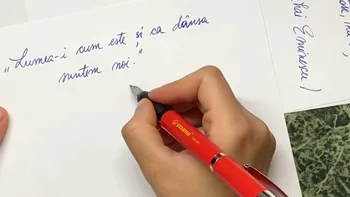 „Lumea-i cum este și ca dânsa
suntem noi.”
Mihai Eminescu)
STABILO